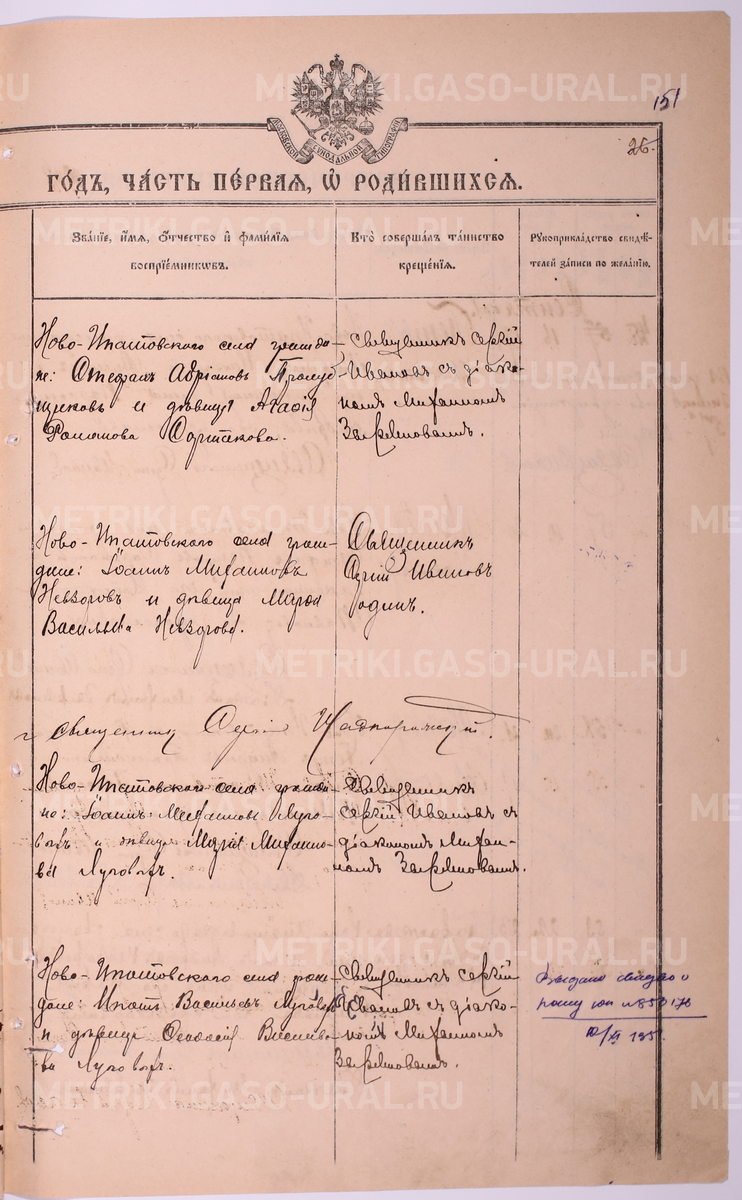 151
26.
МОСКОВСКОЙ СѴНОДАЛЬНОЙ ТИПОГРАФІИ
ГО́ДЪ, ЧА́СТЬ ПЕ́РВАЯ, Ѡ РОДИ́ВШИХСЯ.
ЗВА́НІЕ, И́МЯ, О́ТЧЕСТВО И҆ ФАМИ́ЛІЯ
ВОСПРІЕ́МНИКѠВЪ.
КТО̀ СОВЕРША́ЛЪ ТА́ИНСТВО
КРЕЩЕ́НІЯ.
РУКОПРИКЛА́ДСТВО СВИДѢ́-
ТЕЛЕЙ ЗА́ПИСИ ПО ЖЕЛА́НІЮ.
Ново-Ипатовского села гражда-
не: Стефанъ Адріановъ
и дѣвица Агафія
Романова
Священникъ Сергій
Ивановъ съ діако-
номъ Михаиломъ
Ново-Ипатовского села граж-
дане: Іоаннъ Михаиловъ
Невзоровъ и дѣвица Марѳа
Васильева Невзорова.
Священникъ
Сергій Ивановъ
одинъ.
Священникъ Сергій
Ново-Ипатовского села гражда-
не: Іоаннъ Михаиловъ Луго-
выхъ и дѣвица Марія Михаило-
ва Луговыхъ.
Священникъ
Сергій Ивановъ съ
діакономъ Михаи-
ломъ
Ново-Ипатовского села граж-
дане: Игнатъ Васильевъ Луговыхъ
и дѣвица Феодосія Василье-
ва Луговыхъ.
Священникъ Сергій
Ивановъ съ діако-
номъ Михаиломъ
Выдано свидет о
METRIKI.GASO-URAL.RU